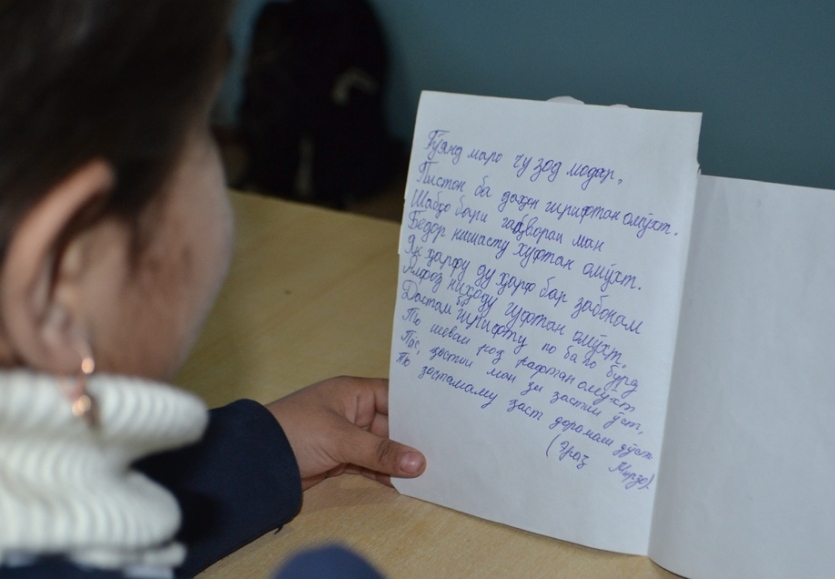 Гӯянд маро чу зод модар,
Пистон ба даҳон гирифтан омӯхт.
Шабҳо бари гаҳвораи ман
Бедор нишасту хуфтан омӯхт.
Як ҳарфу ду ҳарф бар забонам
Алфоз ниҳоду гуфтан омӯхт.
Дастам бигрифту по ба по бурд
То шеваи роҳ рафтан омӯхт
Пас, ҳастии ман зи ҳастии ӯст,
То ҳастаму ҳаст дорамаш дӯст
(Эраҷ Мирзо)